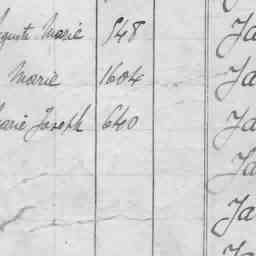 Auguste Marie 548 Ja
Marie 1604 Ja
Marie Joseph 640 Ja
Ja
Ja
Ja